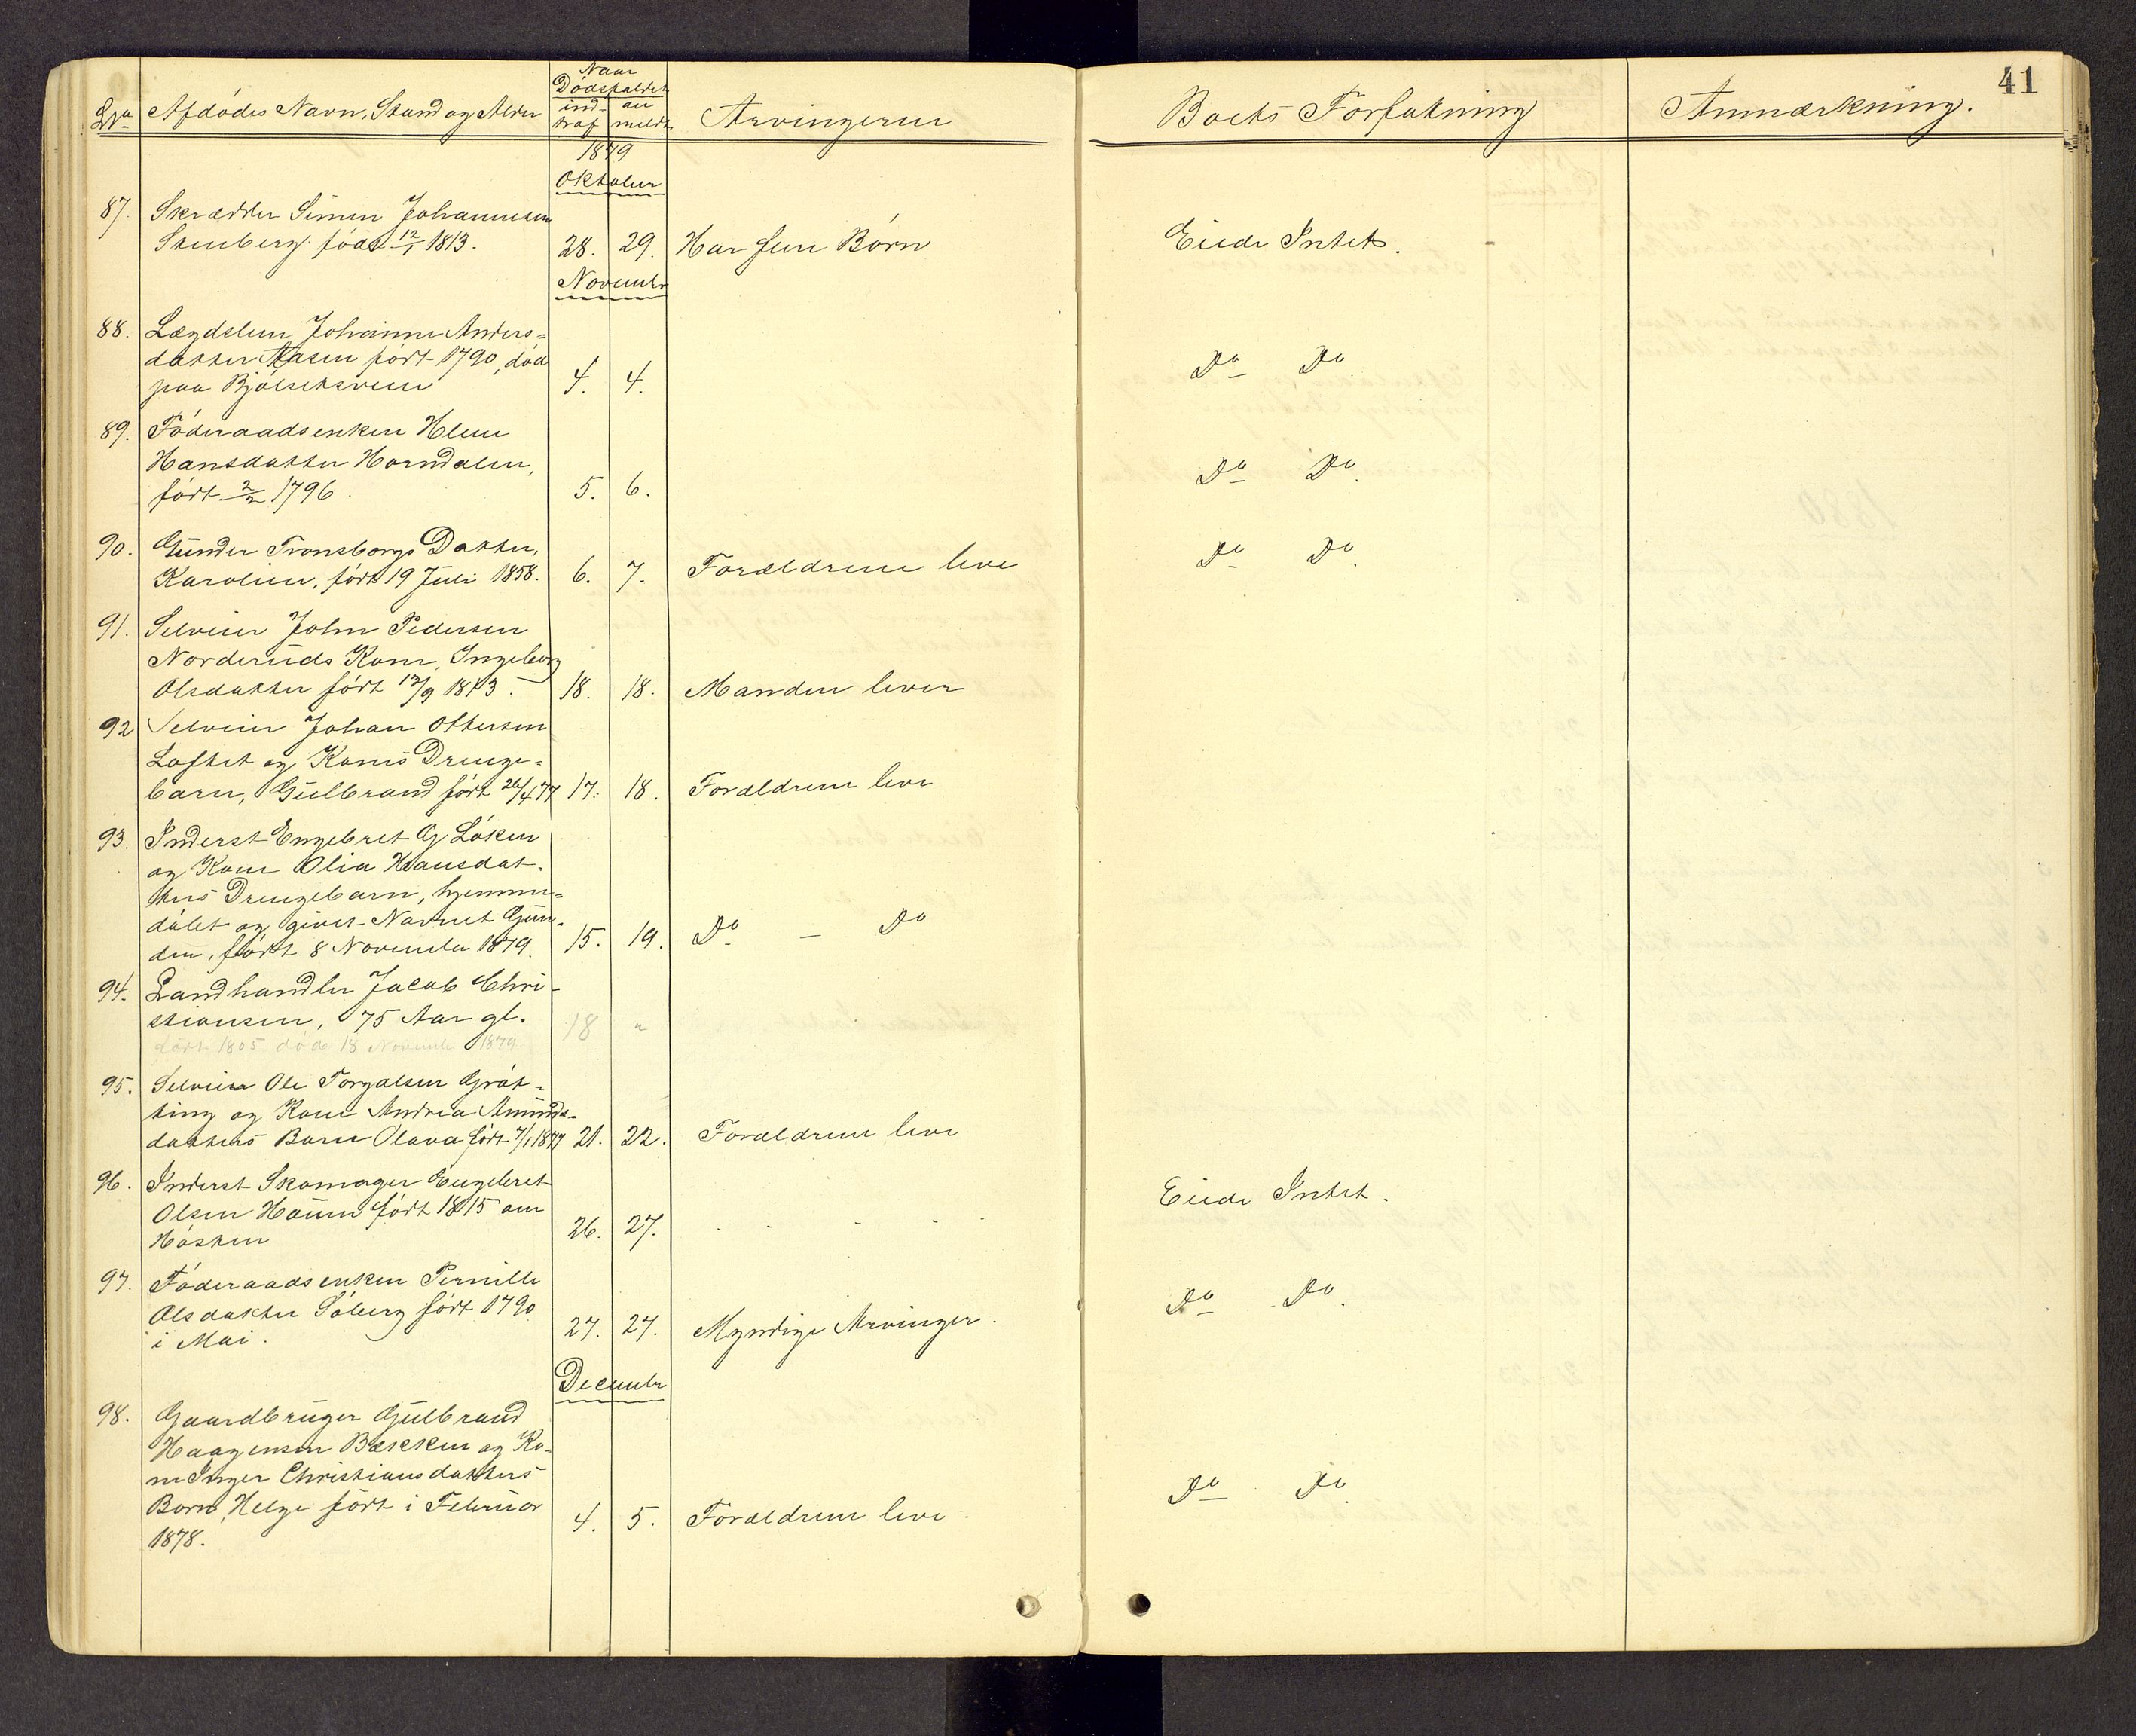 41
Naar
Dödsfaldet
Afdödes Navn, Stand og Alder ind- an Arvingerne Boets Forfatning Anmærkning.
traf meldt
1879
Oktober
87. Skrædder Simen Johannesen
Stenberg. födt 12/1 1813. 28. 29. Har fem Börn Eiede Intet.
November
88. Lægdslem Johanne Anders=
datter Aasen födt 1790, död Do Do
paa Bjölsetsveen 4. 4.
89. Föderaadsenken Helene
Hansdatter Horndalen, Do Do.
född 2/2 1796. 5. 6.
90. Gunder Tronsborgs Datter,
Karoline, födt 19 Juli 1858. 6. 7. Forældrene leve Do Do.
91. Selveier John Pedersen
Norderuds Kone, Ingeborg
Olsdatter födt 12/9 1813. 18. 18. Manden lever
92 Selveier Johan Ottersen
Loftet og Kones Drenge=
barn, Gulbrand födt 26/4 77 17. 18. Forældrene leve
93. Inderst Engebret G Löken
og Kone Olia Hansdat-
ters Drengebarn, hjemme=
döbt og givet Navnet Gun-
der, födt 8 November 1879. 15. 19. Do — Do
94. Landhandler Jacob Chri-
stiansen, 75 Aar gl. 18 "
födt 1805 död 18 November 1879
95. Selveier Ole Torgalsen Gröt-
ting og Kone Andrea Amunds-
datters Barn Olava födt 7/1 1877 21. 22. Forældrene leve
96. Inderst Skomager Engebret
Olsen Haugen födt 1815 om Eiede Intet.
Hösten 26. 27.
97. Föderaadsenken Pernille
Olsdatter Söberg födt 1790 Do Do.
i Mai. 27. 27. Myndige Arvinger.
December
98. Gaardbruger Gulbrand
Haagensen Bækken og Ko-
ne Inger Christiansdatters
Barn, Helge födt i Februar Do Do.
1878. 4. 5. Forældrene leve.